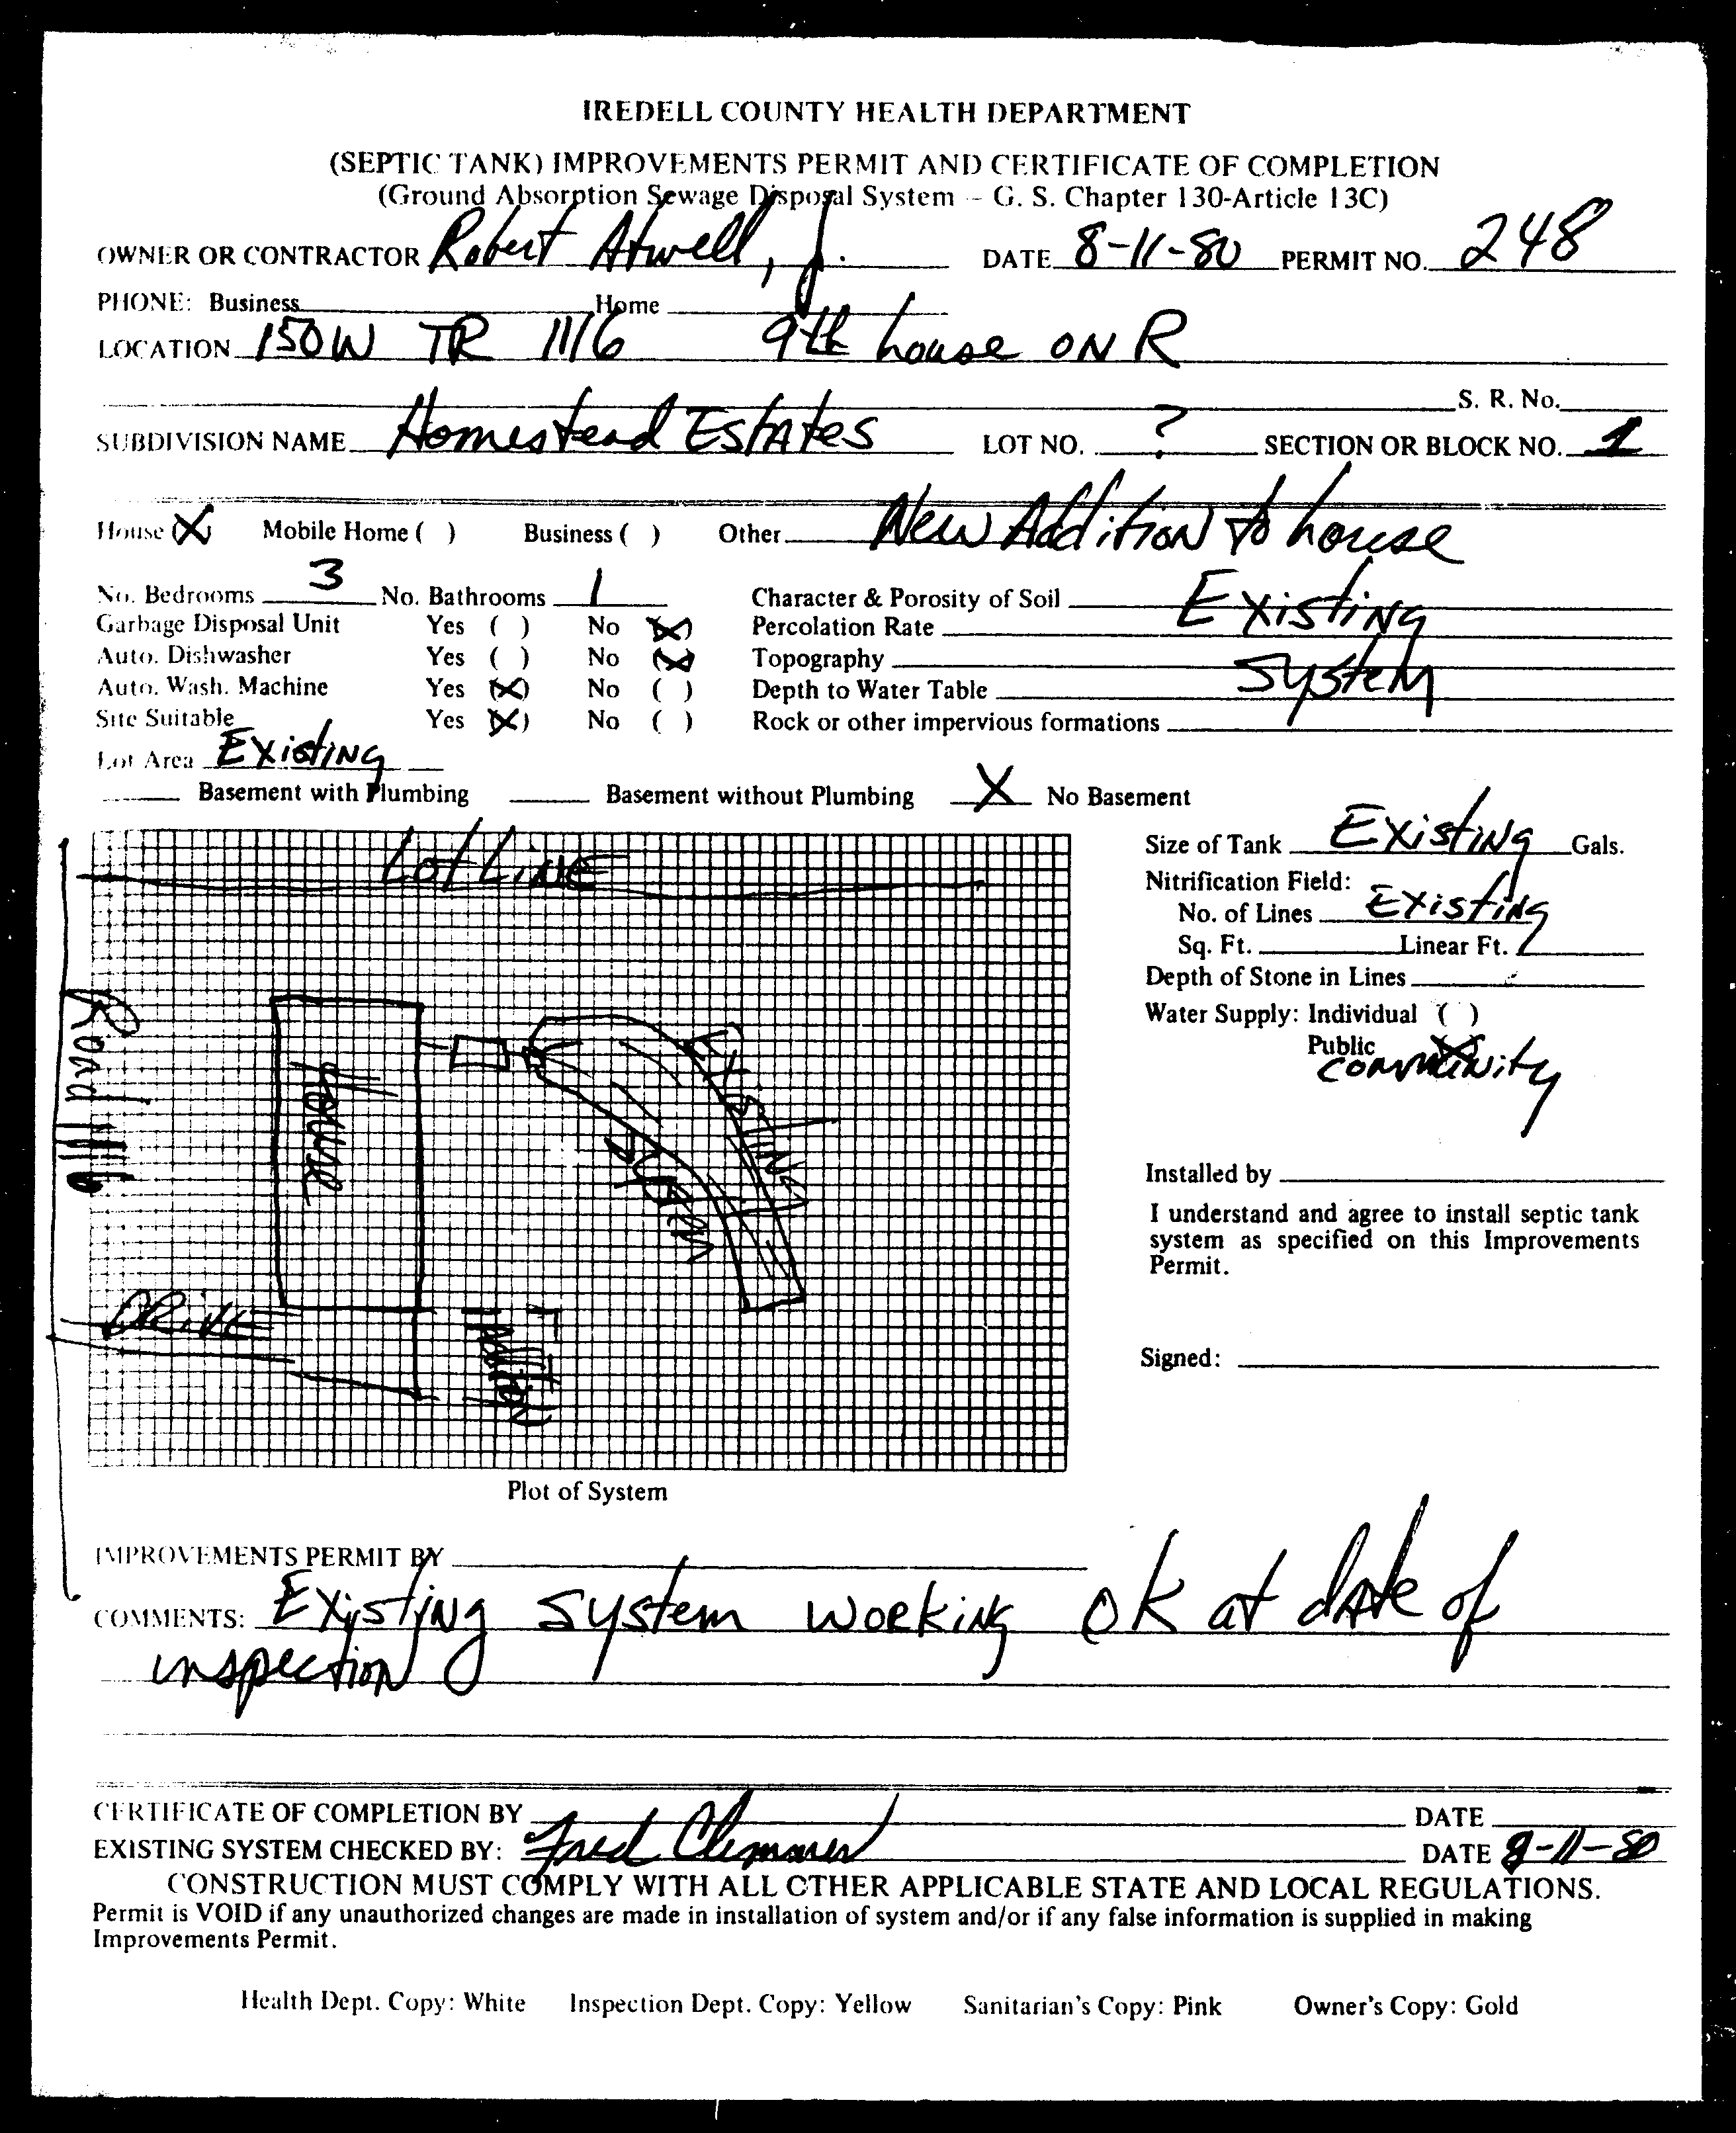 IREDELL COUNTY HEALTH DEPARTMENT
(SEPTIC TANK) IMPROVEMENTS PERMIT AND CERTIFICATE OF COMPLETION
(Ground Absorption Sewage Disposal System – G. S. Chapter 130-Article 13C)
OWNER OR CONTRACTOR Robert Atwell, Jr. DATE 8-11-80 PERMIT NO. 248
PHONE: Business Home
LOCATION 150W TR 1116 9th house ON R
S. R. No.
SUBDIVISION NAME Homestead Estates LOT NO. ? SECTION OR BLOCK NO. 1
House (X) Mobile Home ( ) Business ( ) Other New Addition to house
No. Bedrooms 3 No. Bathrooms 1 Character & Porosity of Soil Existing
Garbage Disposal Unit Yes ( ) No (X) Percolation Rate
Auto. Dishwasher Yes ( ) No (X) Topography System
Auto. Wash. Machine Yes (X) No ( ) Depth to Water Table
Site Suitable Yes (X) No ( ) Rock or other impervious formations
Lot Area Existing
Basement with Plumbing Basement without Plumbing X No Basement
Lot Line
Road 1116
House
Existing
System
Drive
Addition
Plot of System
Size of Tank Existing Gals.
Nitrification Field:
No. of Lines Existing
Sq. Ft. Linear Ft.
Depth of Stone in Lines
Water Supply: Individual ( )
Public (X)
Community
Installed by
I understand and agree to install septic tank
system as specified on this Improvements
Permit.
Signed:
IMPROVEMENTS PERMIT BY
COMMENTS: Existing system working ok at date of
inspection
CERTIFICATE OF COMPLETION BY DATE
EXISTING SYSTEM CHECKED BY: Fred Clemmer DATE 8-11-80
CONSTRUCTION MUST COMPLY WITH ALL OTHER APPLICABLE STATE AND LOCAL REGULATIONS.
Permit is VOID if any unauthorized changes are made in installation of system and/or if any false information is supplied in making
Improvements Permit.
Health Dept. Copy: White Inspection Dept. Copy: Yellow Sanitarian's Copy: Pink Owner's Copy: Gold